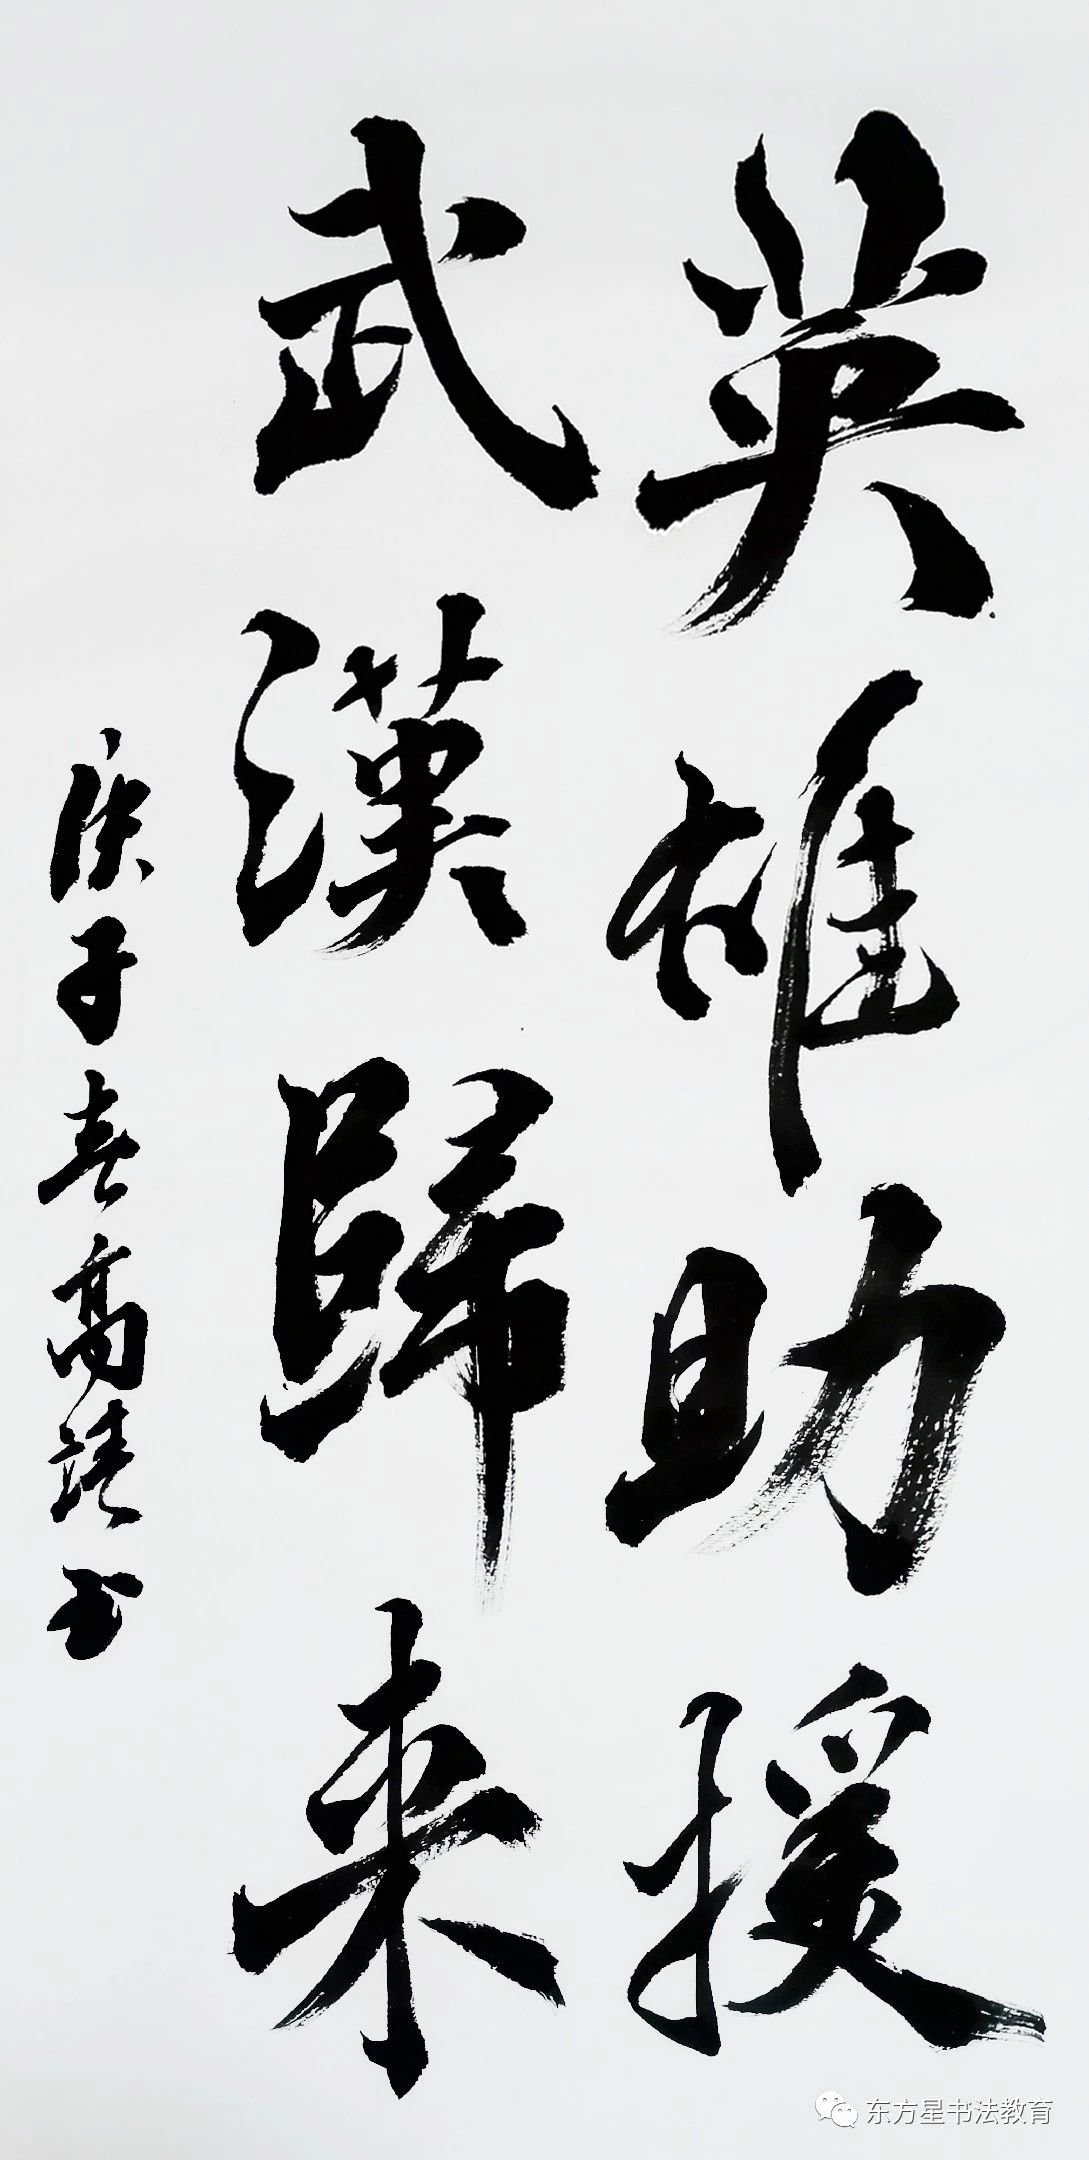 英雄助援
武漢歸来
庚子春高諾书
东方星书法教育